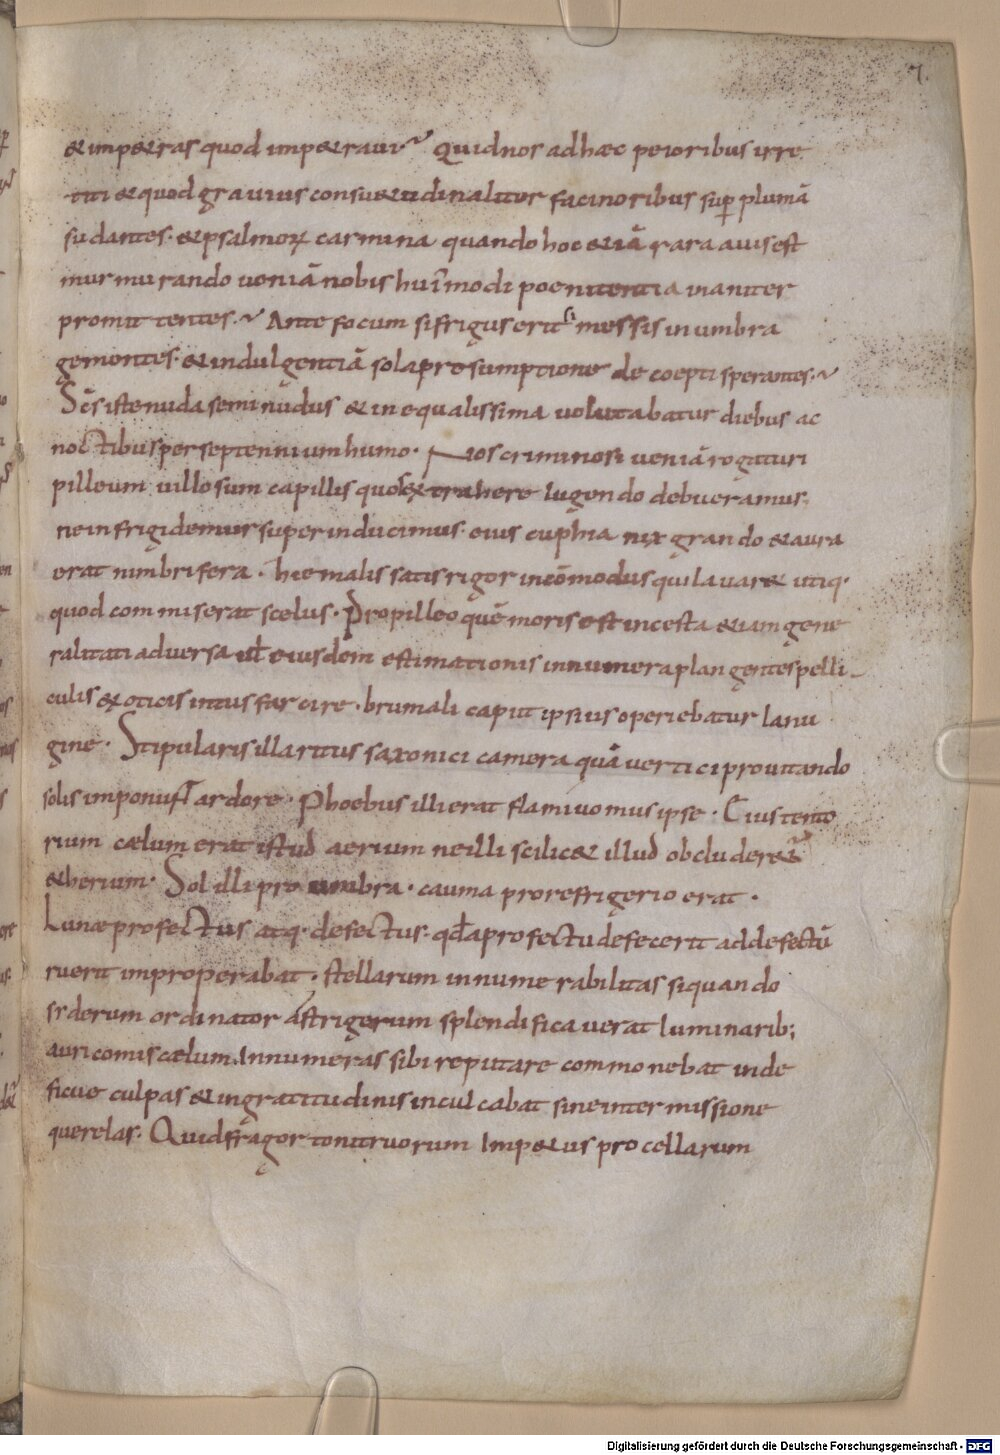 7.
& imp&ras quod imp&rauit Quid nos ad hæc peioribus irre
titi & quod grauius consu&udinalitor facinoribus sup plumā
sudantes· & psalmoꝝ carmina quando hoc &iā rara auis est
murmurando ueniā nobis hui͛modi poenitentia inaniter
promittentes· Ante focum si frigus erit si messis in umbra
gementes· & indulgentiā sola presumptione de coepti sperantes·
Sc̄s iste nuda seminudus & inequalissima uolutabatur diebus ac
noctibus per septennium humo· Nos criminosi ueniā rogaturi
pilleum uillosum capillis quos extrahere lugendo debueramus
ne infrigidemur superinducimus· eius cuphia nix grando & aura
erat nimbrifera· hiemalis satis rigor incōmodus qui lauar& utiq·
quod commiserat scelus· Pro pilleo quē moris est incesta &iam gene
ralitati aduersa uł eiusdem estimationis innumera plangentes pelli
culis exoticis intus farcire· brumali caput ipsius operiebatur lanu
gine· Stipularis illa ritus saxonici camera quā uertici pro uitando
solis imponunt ardore· Phoebus illi erat flamiuomus ipse· Eius tento
rium cælum erat istud aerium ne illi scilic& illud obcluder&
&herium· Sol illi pro umbra· cauma pro refrigerio erat·
Lunæ profectus atq· defectus· qđ a profectu defecerit ad defectū
ruerit improperabat· stellarum innumerabilitas siquando
siderum ordinator astrigerum splendificauerat luminarib;
auricomis cælum· Innumeras sibi reputare commonebat inde
ficue culpas & ingratitudinis inculcabat sine intermissione
querelas· Quid fragor tonitruorum Imp&us procellarum
Digitalisierung gefördert durch die Deutsche Forschungsgemeinschaft - DFG